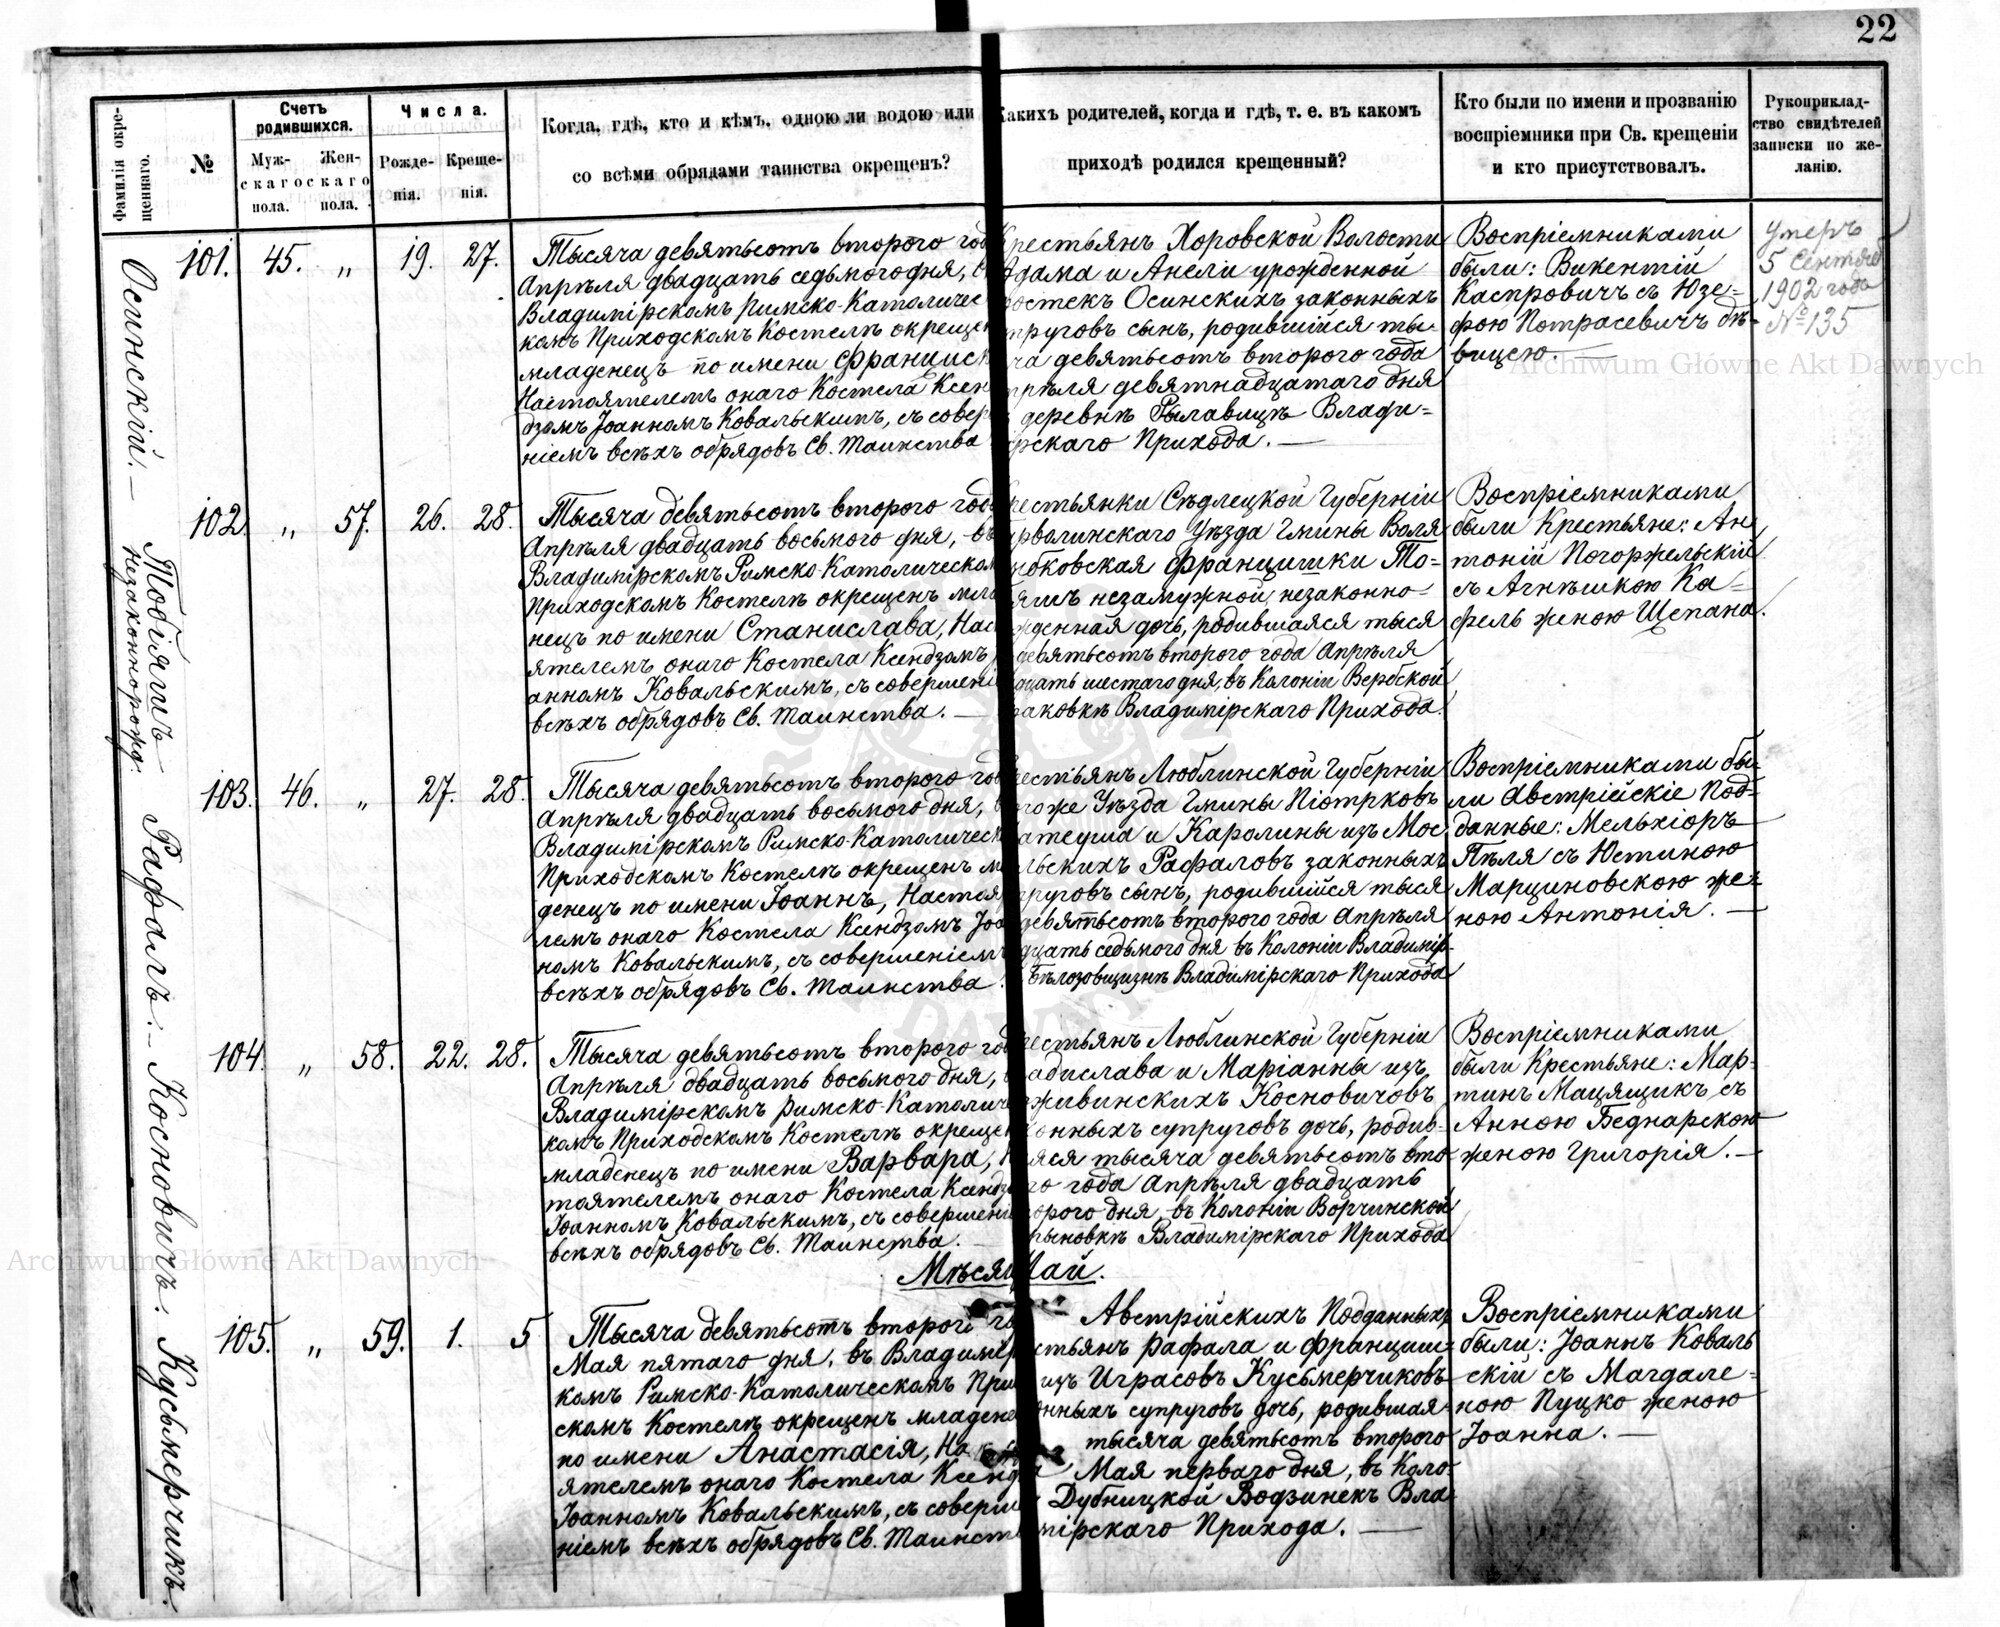 22
Фамилія окре-
щеннаго.
№
Счетъ
родившихся.
Муж-
скаго
пола.
Жен-
скаго
пола.
Числа.
Рожде-
нія.
Креще-
нія.
Когда, гдѣ, кто и кѣмъ, одною ли водою или
со всѣми обрядами таинства окрещенъ?
Какихъ родителей, когда и гдѣ, т. е. въ какомъ
приходѣ родился крещенный?
Кто были по имени и прозванію
воспріемники при Св. крещеніи
и кто присутствовалъ.
Рукоприклад-
ство свидѣтелей
записки по же-
ланію.
Осинскій.—
101. 45. „ 19. 27.
Тысяча девятьсотъ второго год
Апрѣля двадцать седьмого дня,
Владимірскомъ Римско-Католичес
комъ Приходскомъ Костелѣ окрещен
младенецъ по имени Францискъ
Настоятелемъ онаго Костела Ксен
дзомъ Іоанномъ Ковальскимъ, съ совер
ніемъ всѣхъ обрядовъ Св. Таинства
крестьянъ Хоровской Волости
Адама и Анели урожденной
Костекъ Осинскихъ законныхъ
пруговъ сынъ, родившійся ты-
ча девятьсотъ второго года
прѣля девятнадцатаго дня
деревнѣ Рылавицѣ Влади=
рскаго Прихода. —
Воспріемниками
были: Викентій
Каспровичъ съ Юзе-
фою Потрасевичъ дѣ-
вицею. —
Умеръ
5 Сентяб
1902 года
№ 135
Тобіяшъ
незаконнорожд.
102. „ 57. 26. 28.
Тысяча девятьсотъ второго год
Апрѣля двадцать восьмого дня, въ
Владимірскомъ Римско-Католическом
Приходскомъ Костелѣ окрещенъ мла
нецъ по имени Станислава, Нас
ятелемъ онаго Костела Ксендзомъ
анномъ Ковальскимъ, съ совершені
всѣхъ обрядовъ Св. Таинства. —
рестьянки Сѣдлецкой Губерніи
рволинскаго Уѣзда Гмины Воля
мбковская Францишки То=
яшъ незамужной, незаконно-
жденная дочь, родившаяся тыся
девятьсотъ второго года Апрѣля
дцать шестаго дня, въ Колоніи Вербской
аковкѣ Владимірскаго Прихода.
Воспріемниками
были Крестьяне: Ан
тоній Погоржельскій
съ Агнѣшкою Ка=
фель женою Щепана.
Рафалъ.—
103. 46. „ 27. 28.
Тысяча девятьсотъ второго год
Апрѣля двадцать восьмого дня,
Владимірскомъ Римско-Католическ
Приходскомъ Костелѣ окрещенъ м
денецъ по имени Іоаннъ, Настоя
лемъ онаго Костела Ксендзомъ Іоа
номъ Ковальскимъ, съ совершеніемъ
всѣхъ обрядовъ Св. Таинства.
рестьянъ Люблинской Губерніи
огоже Уѣзда Гмины Піотрковъ
атеуша и Каролины изъ Мос
льскихъ Рафаловъ законныхъ
пруговъ сынъ, родившійся тыся
девятьсотъ второго года Апрѣля
дцать седьмого дня въ Колоніи Владимір-
Бѣлозовщизнѣ Владимірскаго Прихода
Воспріемниками бы-
ли Австрійскіе Под-
данные: Мельхіоръ
Пѣля съ Юстиною
Марциновскою же-
ною Антонія. —
Косновичъ.
104. „ 58. 22. 28.
Тысяча девятьсотъ второго год
Апрѣля двадцать восьмого дня,
Владимірскомъ Римско-Католиче
комъ Приходскомъ Костелѣ окрещен
младенецъ по имени Варвара, Н
тоятелемъ онаго Костела Ксендз
Іоанномъ Ковальскимъ, съ совершені
всѣхъ обрядовъ Св. Таинства. —
рестьянъ Люблинской Губерніи
адислава и Маріанны изъ
живинскихъ Косновичовъ
конныхъ супруговъ дочь, родив-
аяся тысяча девятьсотъ вто
го года Апрѣля двадцать
орого дня, въ Колоніи Ворчинской
рыновкѣ Владимірскаго Прихода
Воспріемниками
были Крестьяне: Мар-
тинъ Мацящикъ съ
Анною Беднарскою
женою Григорія. —
Мѣсяц Май.
Кусьмерчикъ.
105. „ 59. 1. 5
Тысяча девятьсотъ второго го
Мая пятаго дня, въ Владимір
комъ Римско-Католическомъ При
скомъ Костелѣ окрещенъ младене
по имени Анастасія, На
ятелемъ онаго Костела Ксендз
Іоанномъ Ковальскимъ, съ соверш
ніемъ всѣхъ обрядовъ Св. Таинст
Австрійскихъ Подданныхъ
стьянъ Рафала и Франциш-
изъ Играсовъ Кусьмерчиковъ
онныхъ супруговъ дочь, родившая-
тысяча девятьсотъ второго
Мая перваго дня, въ Коло-
Дубницкой Водзинекъ Вла-
мірскаго Прихода. —
Воспріемниками
были: Іоаннъ Коваль
скій съ Магдале-
ною Пуцко женою
Іоанна. —
Archiwum Główne Akt Dawnych
Archiwum Główne Akt Dawnych